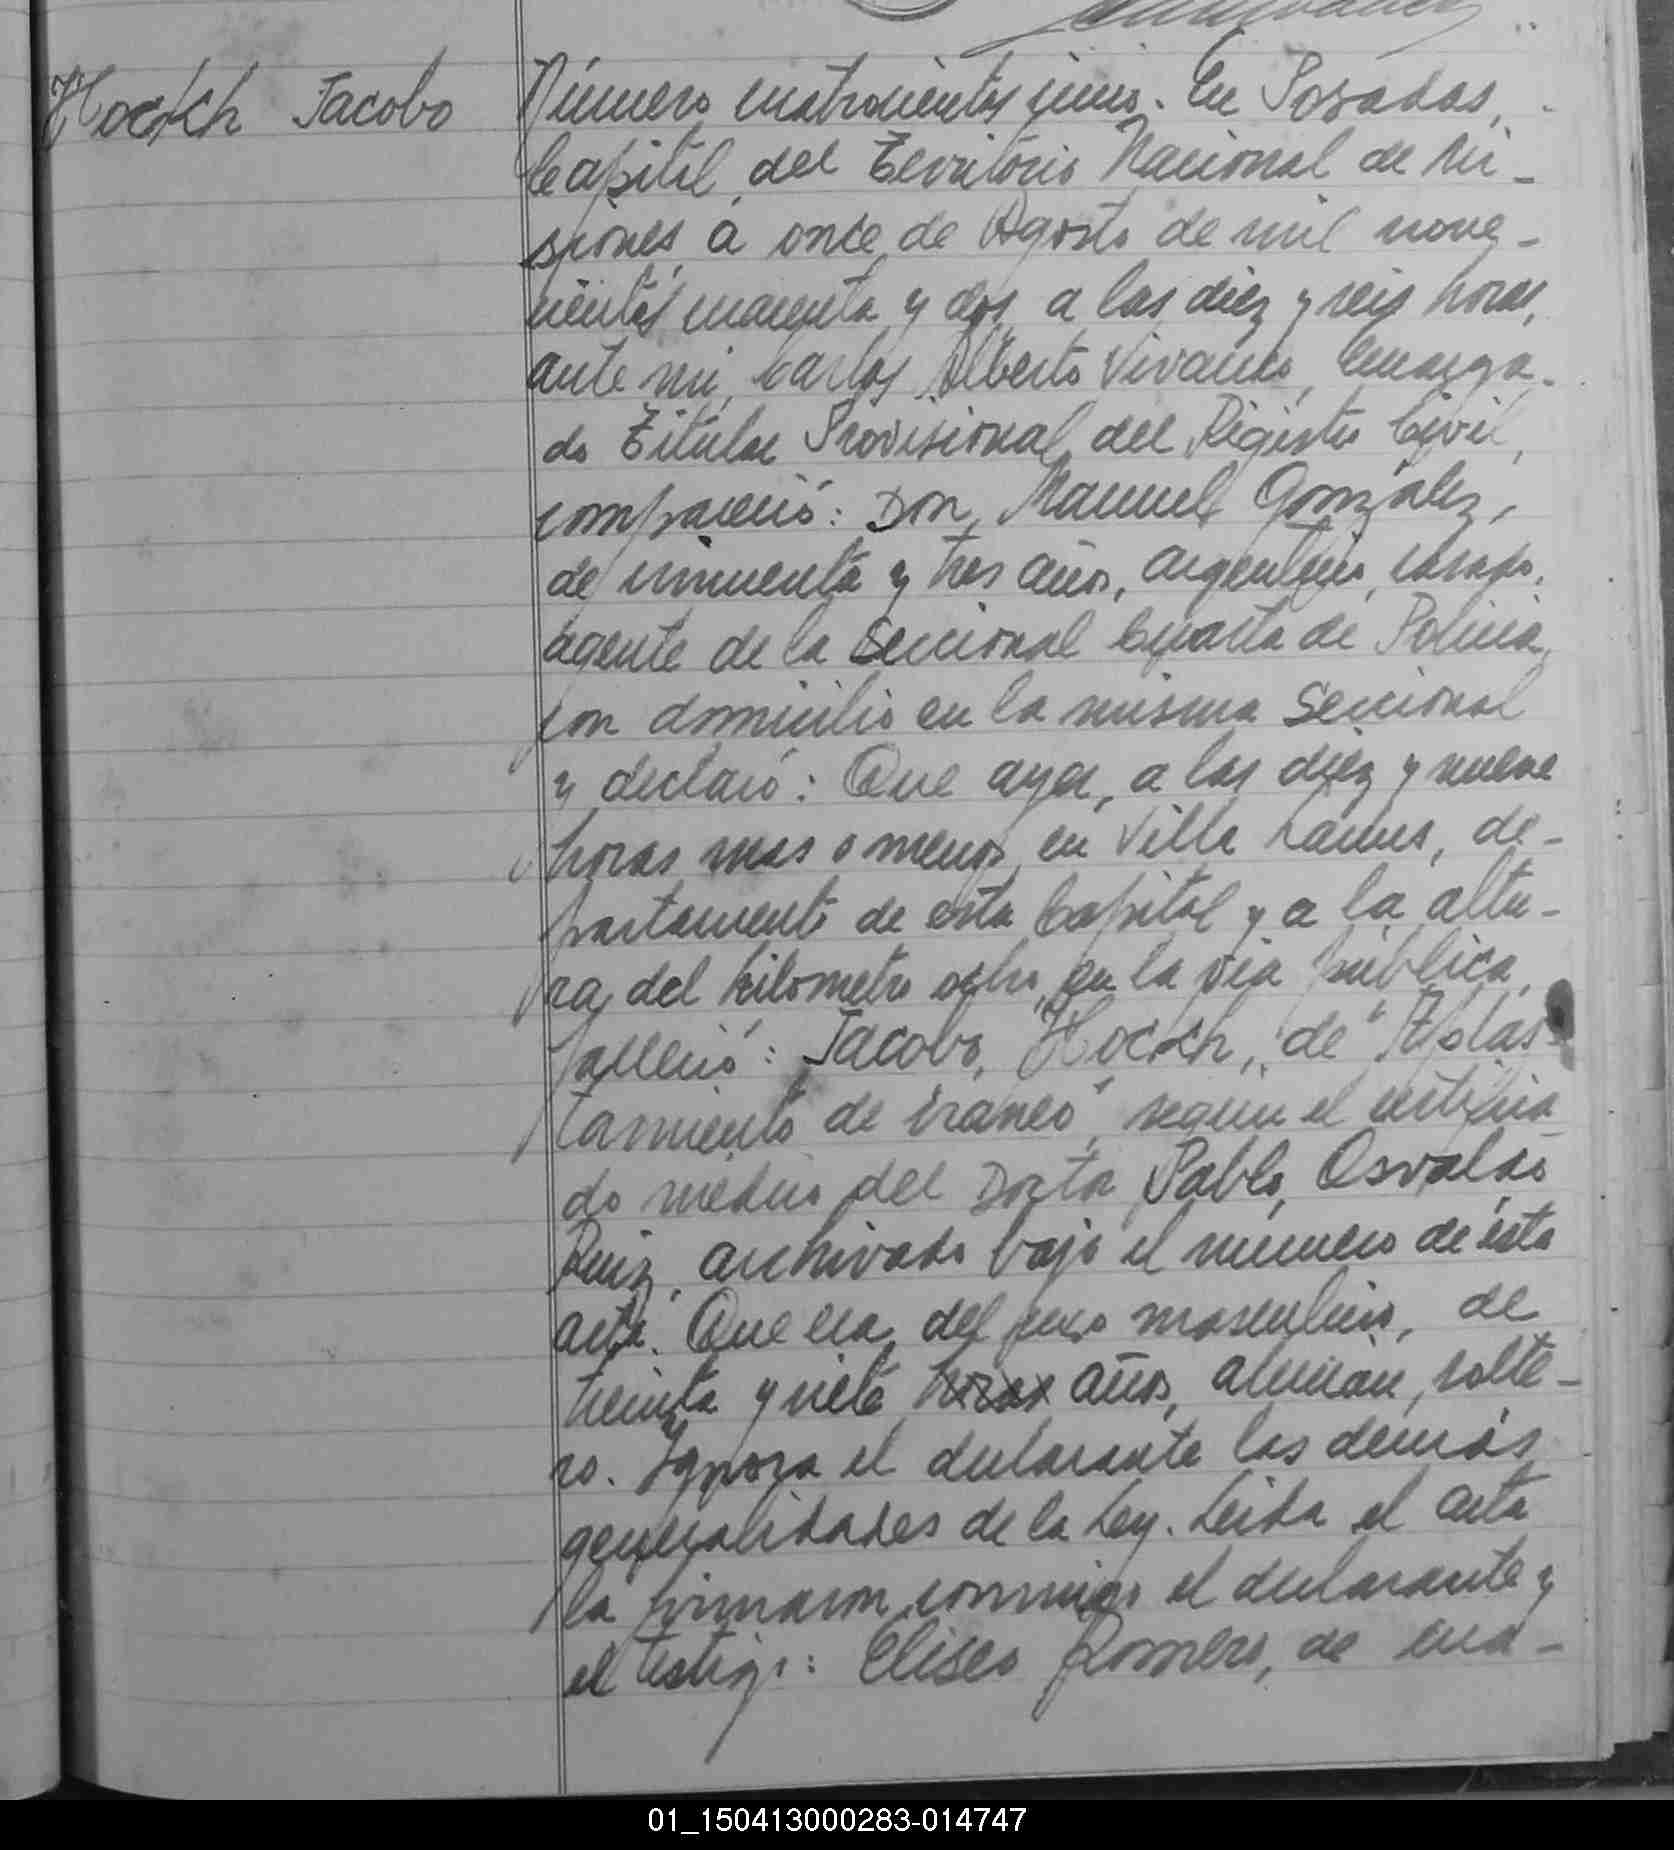 Hocxh Jacobo
Número cuatrocientos cinco. En Posadas,
Capital del Territorio Nacional de Mi-
siones á once de Agosto de mil nove-
cientos cuarenta y dos a las diez y seis horas,
ante mi, Carlos Alberto Vivanco, Encarga-
do Titular Provisional del Registro Civil,
compareció: Don Manuel Gonzalez,
de cincuenta y tres años, argentino, casado,
agente de la Seccional Cuarta de Policia,
con domicilio en la misma Seccional
y declaró: Que ayer, a las diez y nueve
horas mas o menos, en Villa Lanus, de-
partamento de esta Capital y a la altu-
ra, del kilometro ocho, en la via pública,
falleció: Jacobo Hocxh, de "Aplas-
tamiento de craneo", segun el certifica
do medico del Doctor Pablo Osvaldo
Ruiz, archivado bajo el número de ésta
acta. Que era del sexo masculino, de
treinta y siete horas años, alemán, solte-
ro. Ignora el declarante las demás
generalidades de la Ley. Leida el acta
la firmaron conmigo el declarante y
el testigo: Eliseo Romero, de cua-
01_150413000283-014747